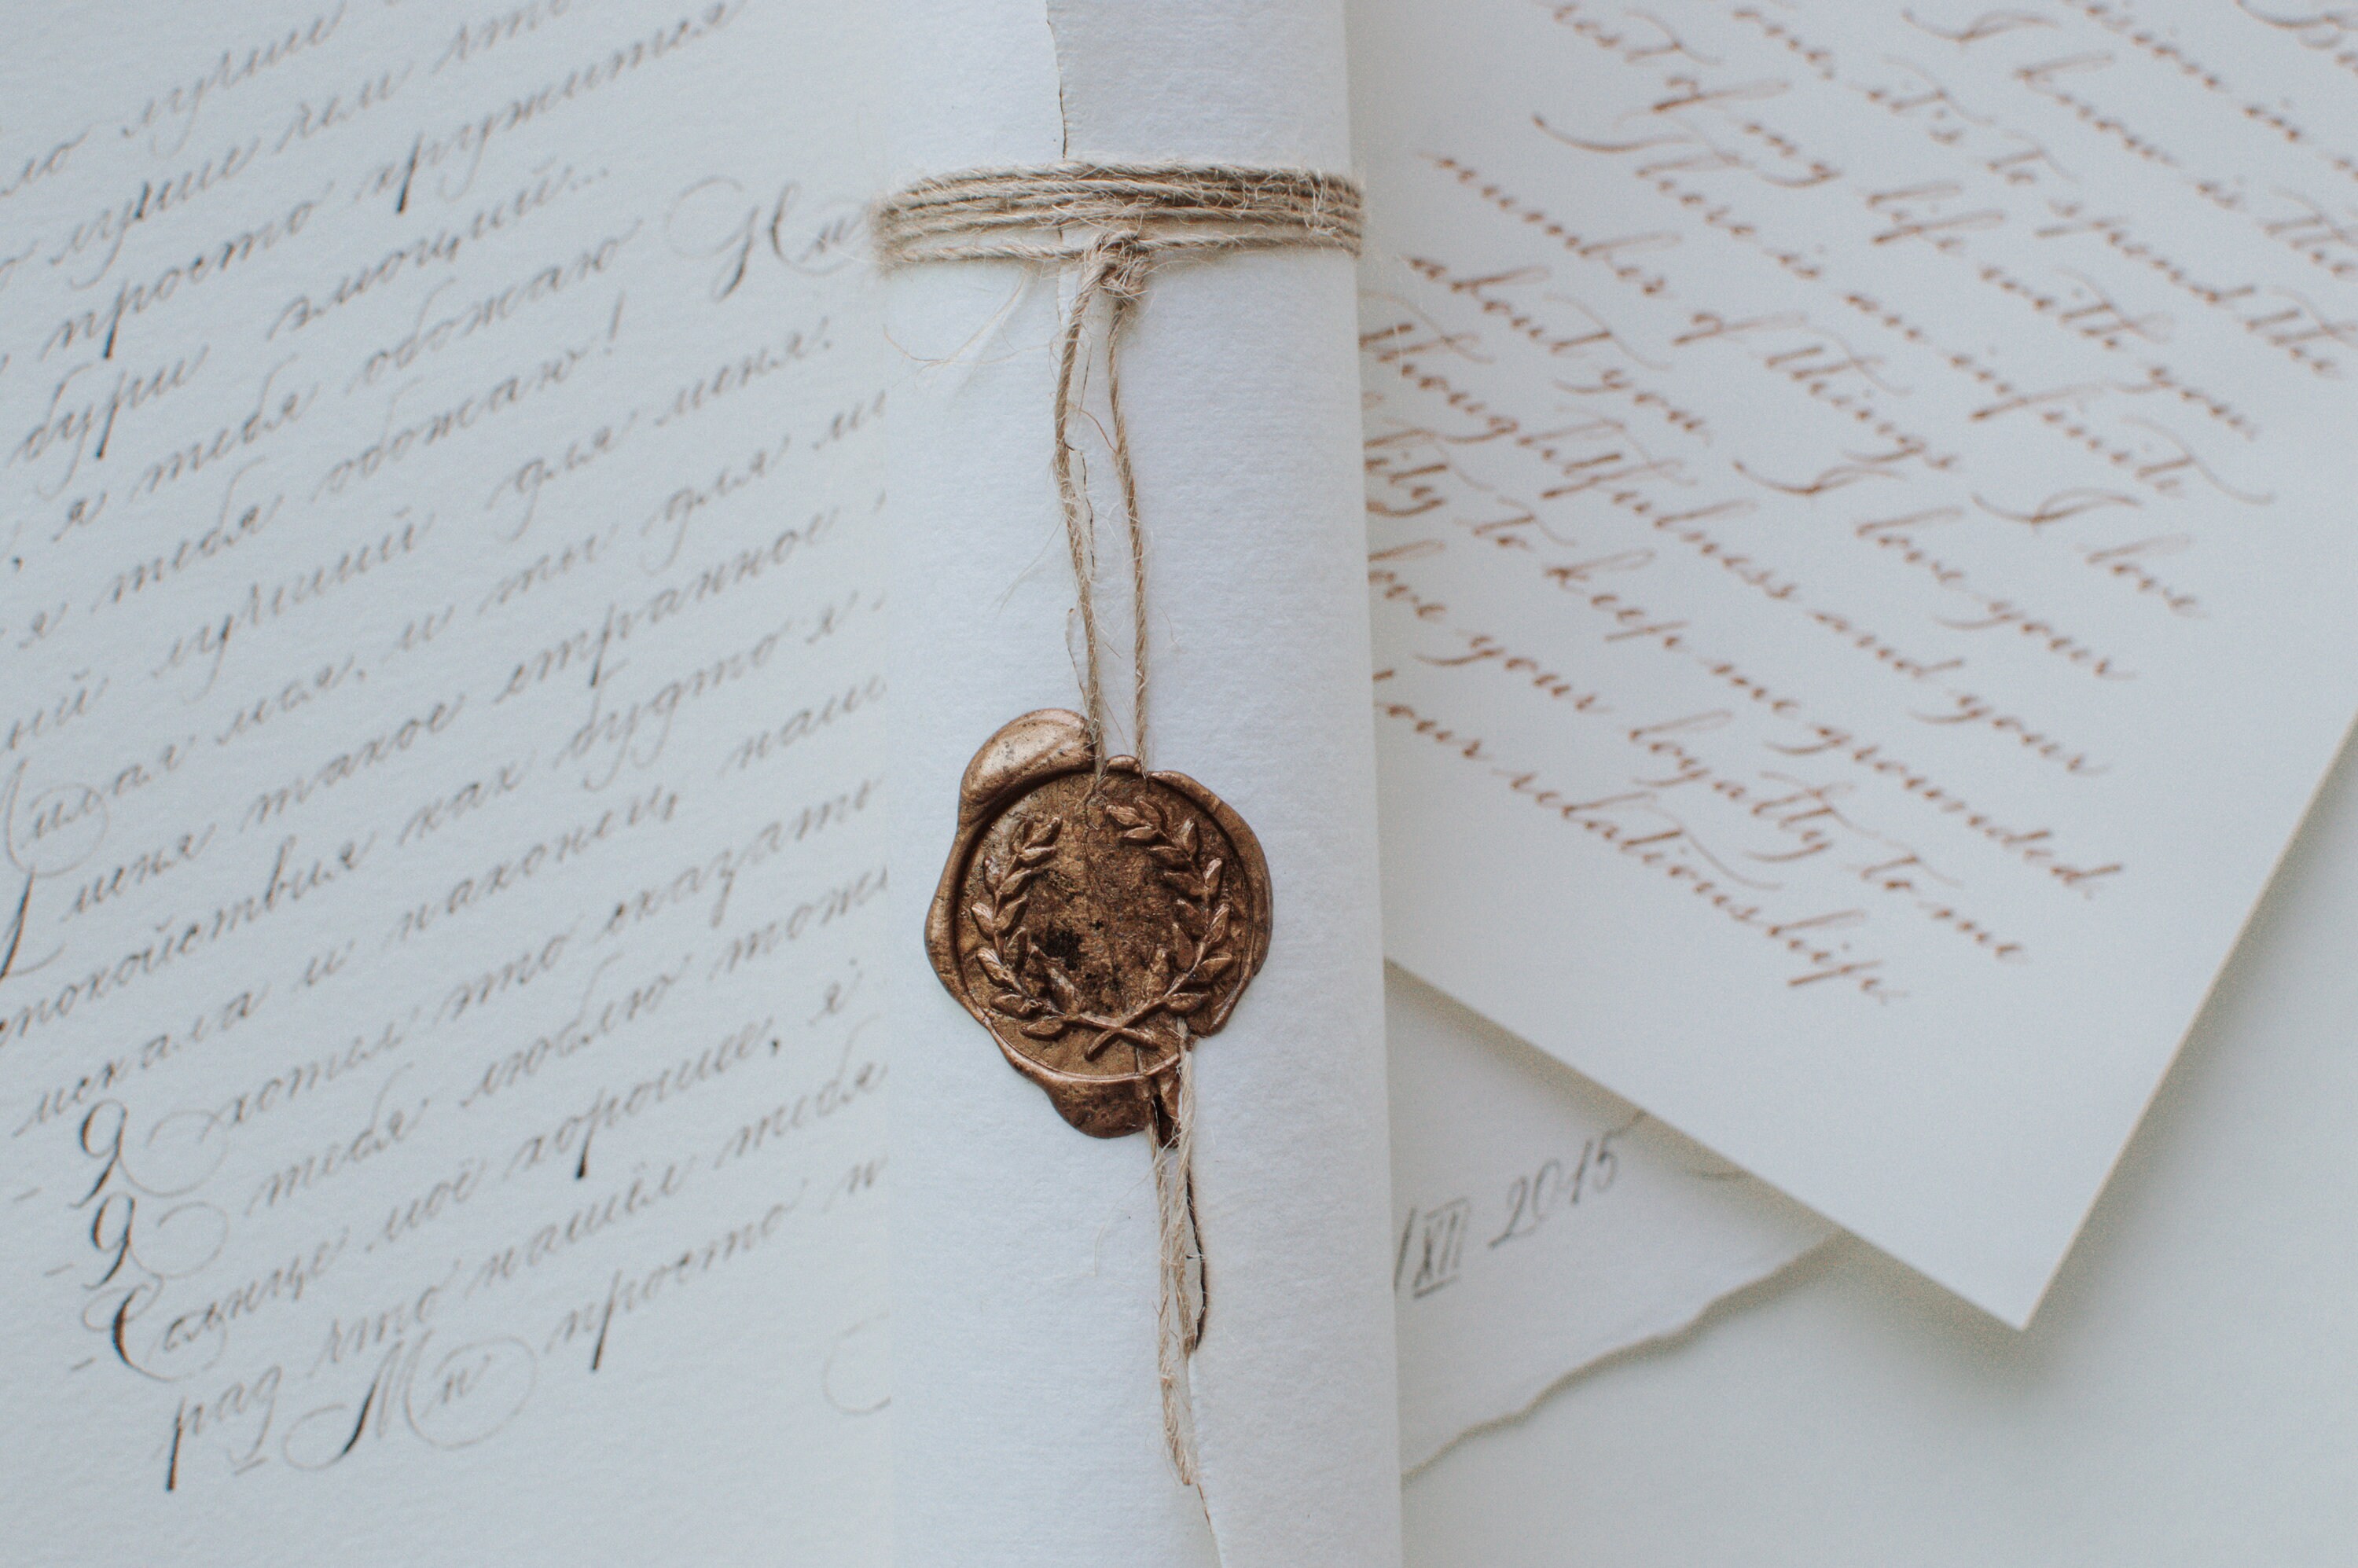 ло лучше
лучше чем что
просто кружится
бури эмоций...
я тебя обожаю Ни
я тебя обожаю!
ний лучший для меня.
Милая моя, и ты для
У меня такое странное
спокойствия как будто я
искала и наконец наш
- Я хотел это сказать
- Я тебя люблю тож
- Солнце моё хорошее, я
рад что нашёл тебя
Мы просто
I know is the
one, it's to spend the
rest of my life with you.
There is an infinite
number of things I love
about you. I love your
thoughtfulness and your
lity to keep me grounded.
love your loyalty to me
our relationship.
/XII 2015